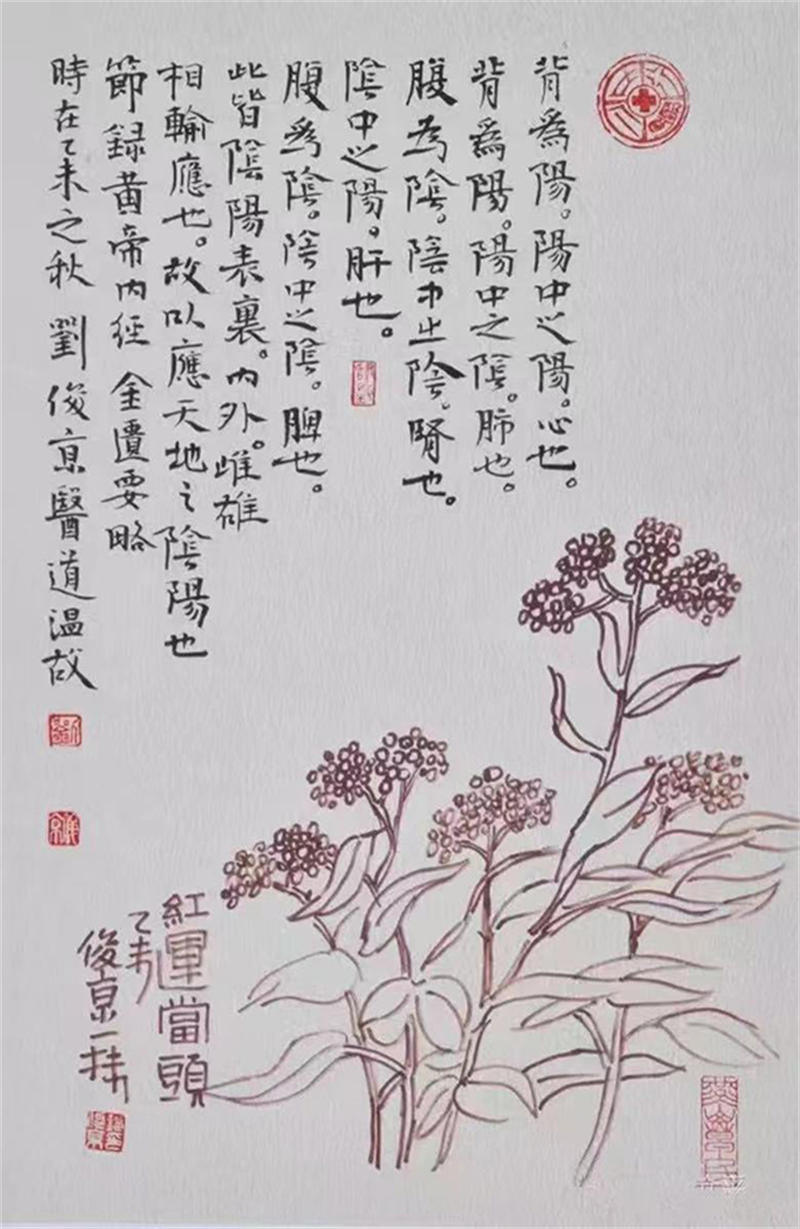 背為陽。陽中之陽。心也。
背爲陽。陽中之陰。肺也。
腹為陰。陰中止陰。腎也。
陰中之陽。肝也。
腹為陰。陰中之陰。脾也。
此皆陰陽表裏。内外。雌雄
相輸應也。故以應天地之陰陽也
節録黄帝内經 金匱要略
時在乙未之秋 劉俊京醫道温故
紅運當頭
乙未
俊京一抹